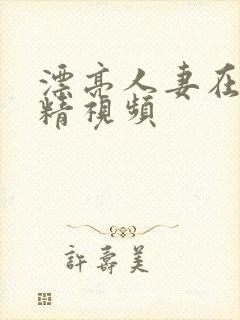 漂亮人妻在
精視頻
許壽美